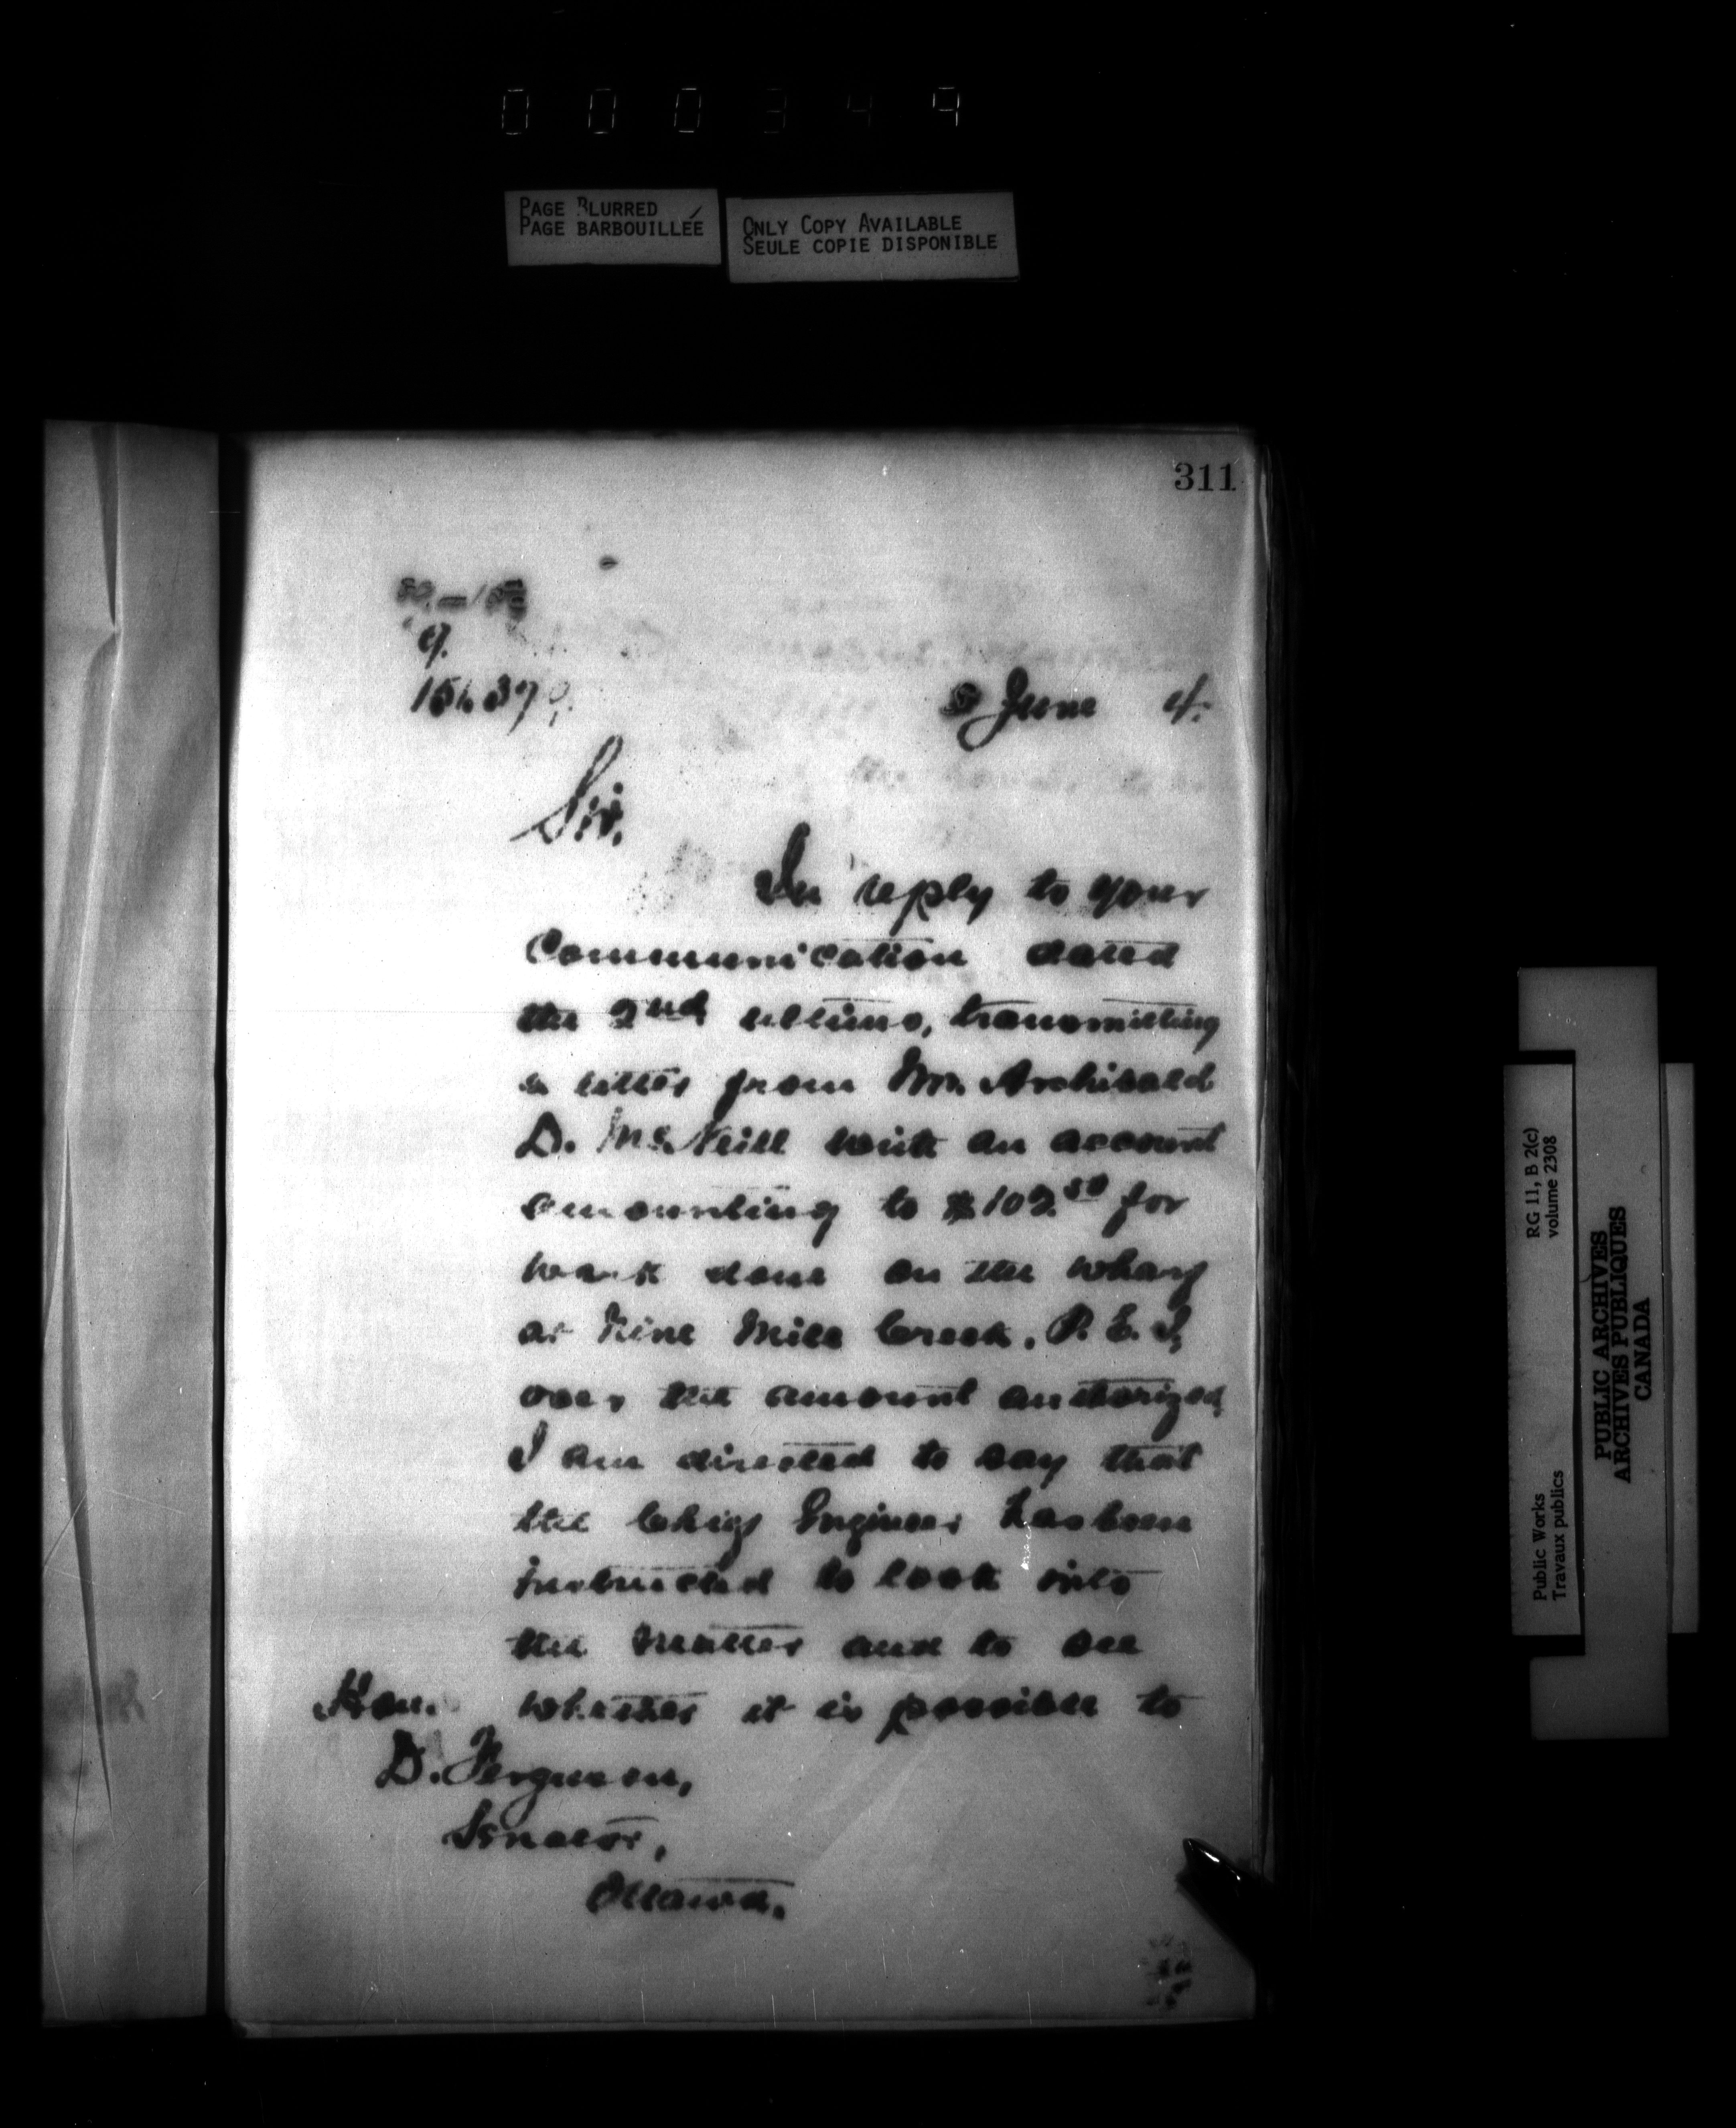 000349
PAGE BLURRED
PAGE BARBOUILLÉE
ONLY COPY AVAILABLE
SEULE COPIE DISPONIBLE
311
9.
June 4.
Sir,
In reply to your
Communication dated
the 2nd ultimo, transmitting
a letter from Mr. Archibald
D. McNeill with an account
amounting to $102.50 for
work done on the wharf
at Nine Mile Creek, P. E. I,
over the amount authorized,
I am directed to say that
the Chief Engineer has been
instructed to look into
the matter and to see
whether it is possible to
Hon.
D. Ferguson,
Senator,
Ottawa.
Public Works
Travaux publics
RG 11, B 2(c)
volume 2308
PUBLIC ARCHIVES
ARCHIVES PUBLIQUES
CANADA